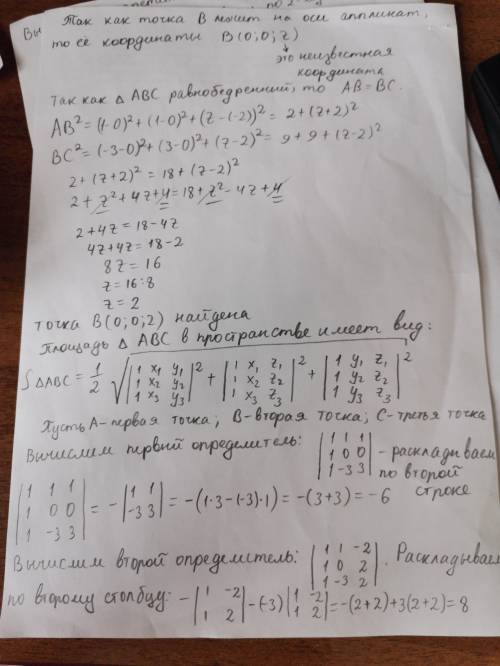 Так как точка B лежит на оси аппликат,
то её координаты B(0;0;z)
это неизвестная
координата
Так как △ABC равнобедренный, то AB=BC.
AB²=(1-0)²+(1-0)²+(z-(-2))²= 2+(z+2)²
BC²=(-3-0)²+(3-0)²+(z-2)²= 9+9+(z-2)²
2+(z+2)²=18+(z-2)²
2+z²+4z+4=18+z²-4z+4
2+4z=18-4z
4z+4z=18-2
8z=16
z=16:8
z=2
точка B(0;0;2) найдена
Площадь △ABC в пространстве имеет вид:
S△ABC = 1/2 √(|1 x₁ y₁; 1 x₂ y₂; 1 x₃ y₃|² + |1 x₁ z₁; 1 x₂ z₂; 1 x₃ z₃|² + |1 y₁ z₁; 1 y₂ z₂; 1 y₃ z₃|²)
Пусть A-первая точка; B-вторая точка; C-третья точка
Вычислим первый определитель: |1 1 1; 1 0 0; 1 -3 3| - раскладываем
по второй
строке
|1 1 1; 1 0 0; 1 -3 3| = -|1 1; -3 3| = -(1·3-(-3)·1)=-(3+3)=-6
Вычислим второй определитель: |1 1 -2; 1 0 2; 1 -3 2|. Раскладываем
по второму столбцу: -|1 -2; 1 2|-(-3)|1 -2; 1 2|=-(2+2)+3(2+2)=8